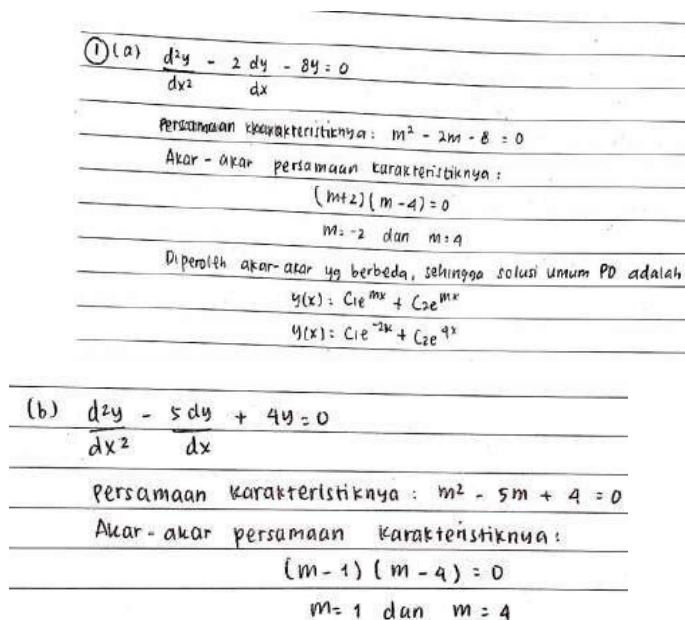 ① (a) d²y/dx² - 2 dy/dx - 8y = 0
Persamaan karakteristiknya : m² - 2m - 8 = 0
Akar - akar persamaan karakteristiknya :
(m+2)(m-4) = 0
m = -2 dan m = 4
Diperoleh akar-akar yg berbeda, sehingga solusi umum PD adalah
y(x) = C₁e^mx + C₂e^mx
y(x) = C₁e^-2x + C₂e^4x
(b) d²y/dx² - 5dy/dx + 4y = 0
Persamaan karakteristiknya : m² - 5m + 4 = 0
Akar - akar persamaan karakteristiknya :
(m - 1) (m - 4) = 0
m = 1 dan m = 4